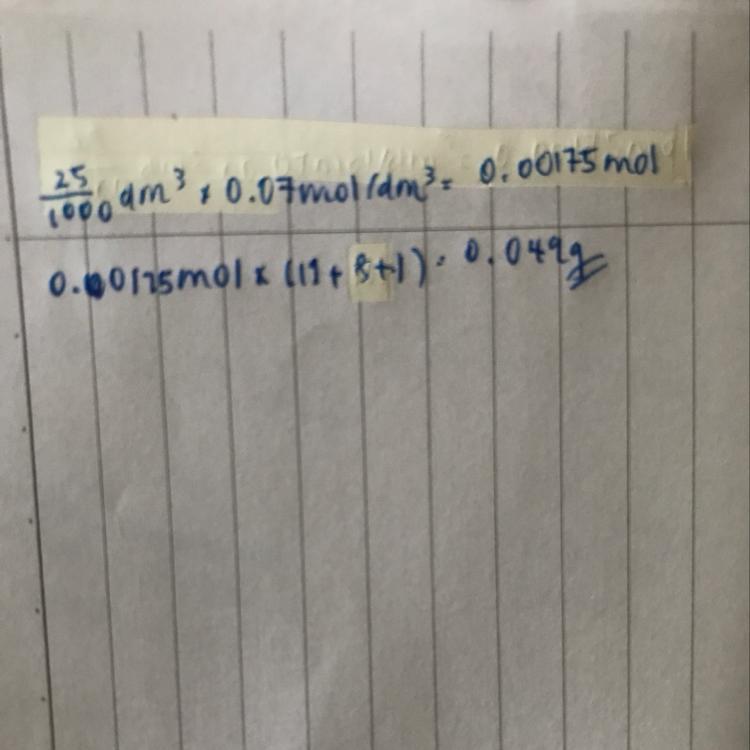 25/1000 dm³ × 0.07mol/dm³ = 0.00175mol
0.00175mol × (19+8+1) = 0.049g